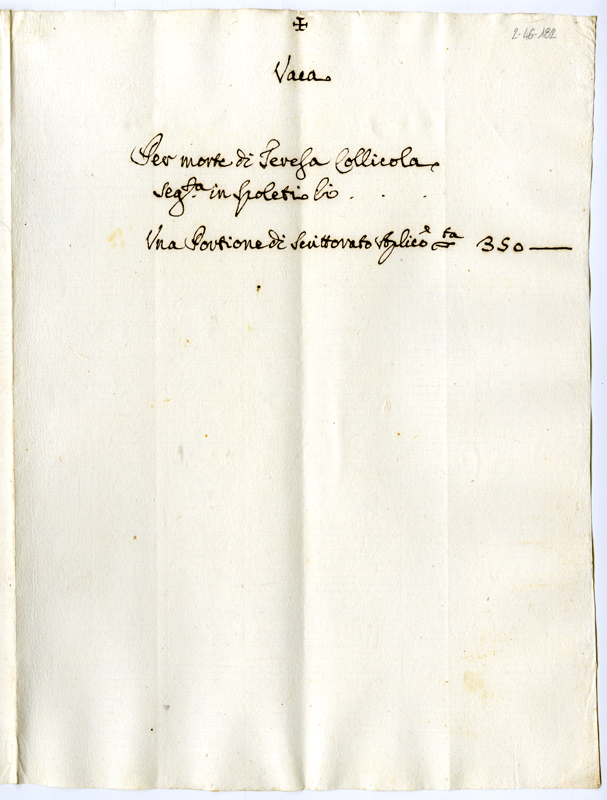 ✠
2-46-182
Vaca
Per morte di Teresa Collicola
seg.ta in Spoleti li . . . .
Una Portione di Scrittorato Aplico 350 —